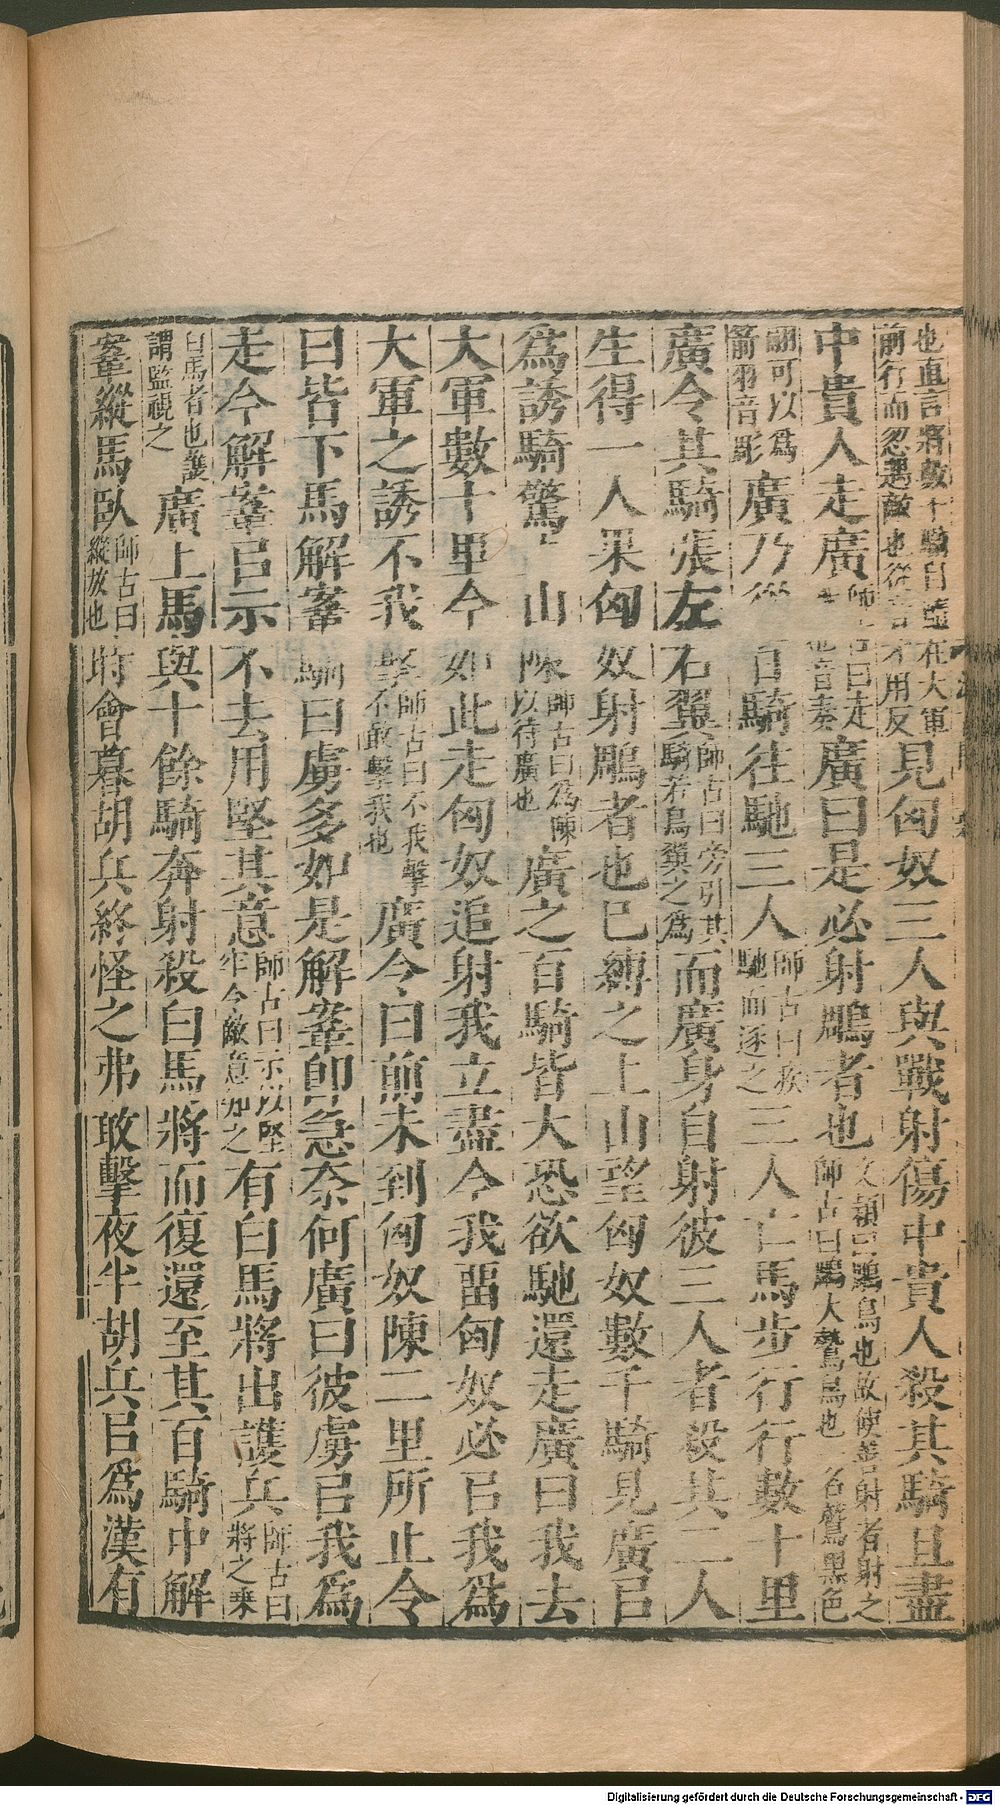 也直言將數十騎自隨在大軍
前行而忽遇敵也從音才用反
見匈奴三人與戰射傷中貴人殺其騎且盡
中貴人走廣
師古曰走
音奏
廣曰是必射鵰者也
文穎曰鵰鳥也故使善射者射之
師古曰鵰大鷙鳥也一名鷲黑色
翮可以為
箭羽音彫
廣乃從百騎往馳三人
師古曰疾
馳而逐之
三人亡馬步行行數十里
廣令其騎張左右翼
師古曰旁引其
騎若鳥翼之為
而廣身自射彼三人者殺其二人
生得一人果匈奴射鵰者也已縛之上山望匈奴數千騎見廣㠯
為誘騎驚上山陳
師古曰為陳
以待廣也
廣之百騎皆大恐欲馳還走廣曰我去
大軍數十里今如此走匈奴追射我立盡今我畱匈奴必㠯我為
大軍之誘不我擊
師古曰不我擊
不敢擊我也
廣令曰前未到匈奴陳二里所止令
曰皆下馬解鞌騎曰虜多如是解鞌卽急奈何廣曰彼虜㠯我為
走今解鞌㠯示不去用堅其意
師古曰示以堅
牢令敵意知之
有白馬將出護兵
師古曰
將之乘
白馬者也護
謂監視之
廣上馬與十餘騎奔射殺白馬將而復還至其百騎中解
鞌縱馬臥
師古曰
縱放也
時會暮胡兵終怪之弗敢擊夜半胡兵㠯為漢有
Digitalisierung gefördert durch die Deutsche Forschungsgemeinschaft - DFG